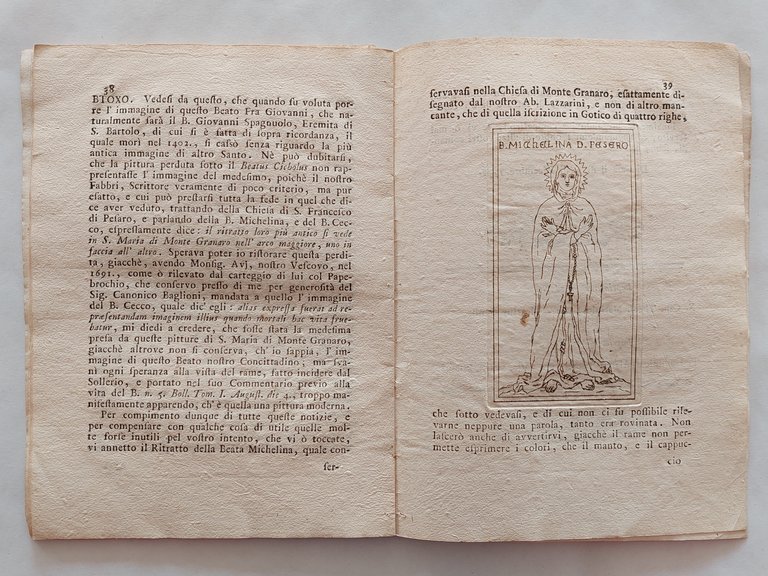 38
BTOXO. Vedesi da questo, che quando fu voluta por-
re l' immagine di questo Beato Fra Giovanni, che
naturalmente sarà il B. Giovanni Spagnuolo, Eremita di
S. Bartolo, di cui si è fatta di sopra ricordanza, il
quale morì nel 1402., si cassò senza riguardo la più
antica immagine di altro Santo. Nè può dubitarsi,
che la pittura perduta sotto il Beatus Cicholus non rap-
presentasse l' immagine del medesimo, poichè il nostro
Fabbri, Scrittore veramente di poco criterio, ma pur
esatto, e cui può prestarsi tutta la fede in quel che di-
ce aver veduto, trattando della Chiesa di S. Francesco
di Pesaro, e parlando della B. Michelina, e del B. Cec-
co, espressamente dice: il ritratto loro più antico si vede
in S. Maria di Monte Granaro nell' arco maggiore, uno in
faccia all' altro. Sperava poter io ristorare questa perdi-
ta, giacchè, avendo Monsig. Avj, nostro Vescovo, nel
1691., come ò rilevato dal carteggio di lui col Pape-
brochio, che conservo presso di me per generosità del
Sig. Canonico Baglioni, mandata a quello l' immagine
del B. Cecco, quale dic' egli: alias expressa fuerat ad re-
presentandam imaginem illius quando mortali hac vita frue-
batur, mi diedi a credere, che fosse stata la medesima
presa da queste pitture di S. Maria di Monte Granaro,
giacchè altrove non si conserva, ch' io sappia, l' im-
magine di questo Beato nostro Concittadino, ma sva-
nì ogni speranza alla vista del rame, fatto incidere dal
Sollerio, e portato nel suo Commentario previo alla
vita del B. n. 5. Boll. Tom. I. August. die 4., troppo ma-
nifestamente apparendo, ch' è quella una pittura moderna.
Per compimento dunque di tutte queste notizie, e
per compensare con qualche cosa di utile quelle mol-
te forse inutili pel vostro intento, che vi ò toccate,
vi annetto il Ritratto della Beata Michelina, quale con-
ser-
39
servavasi nella Chiesa di Monte Granaro, esattamente di-
segnato dal nostro Ab. Lazzarini, e non di altro man-
cante, che di quella iscrizione in Gotico di quattro righe,
B. MICHELINA D. PESERO
che sotto vedevasi, e di cui non ci fu possibile rile-
varne neppure una parola, tanto era rovinata. Non
lascerò anche di avvertirvi, giacchè il rame non per-
mette esprimere i colori, che il manto, e il cappuc-
cio